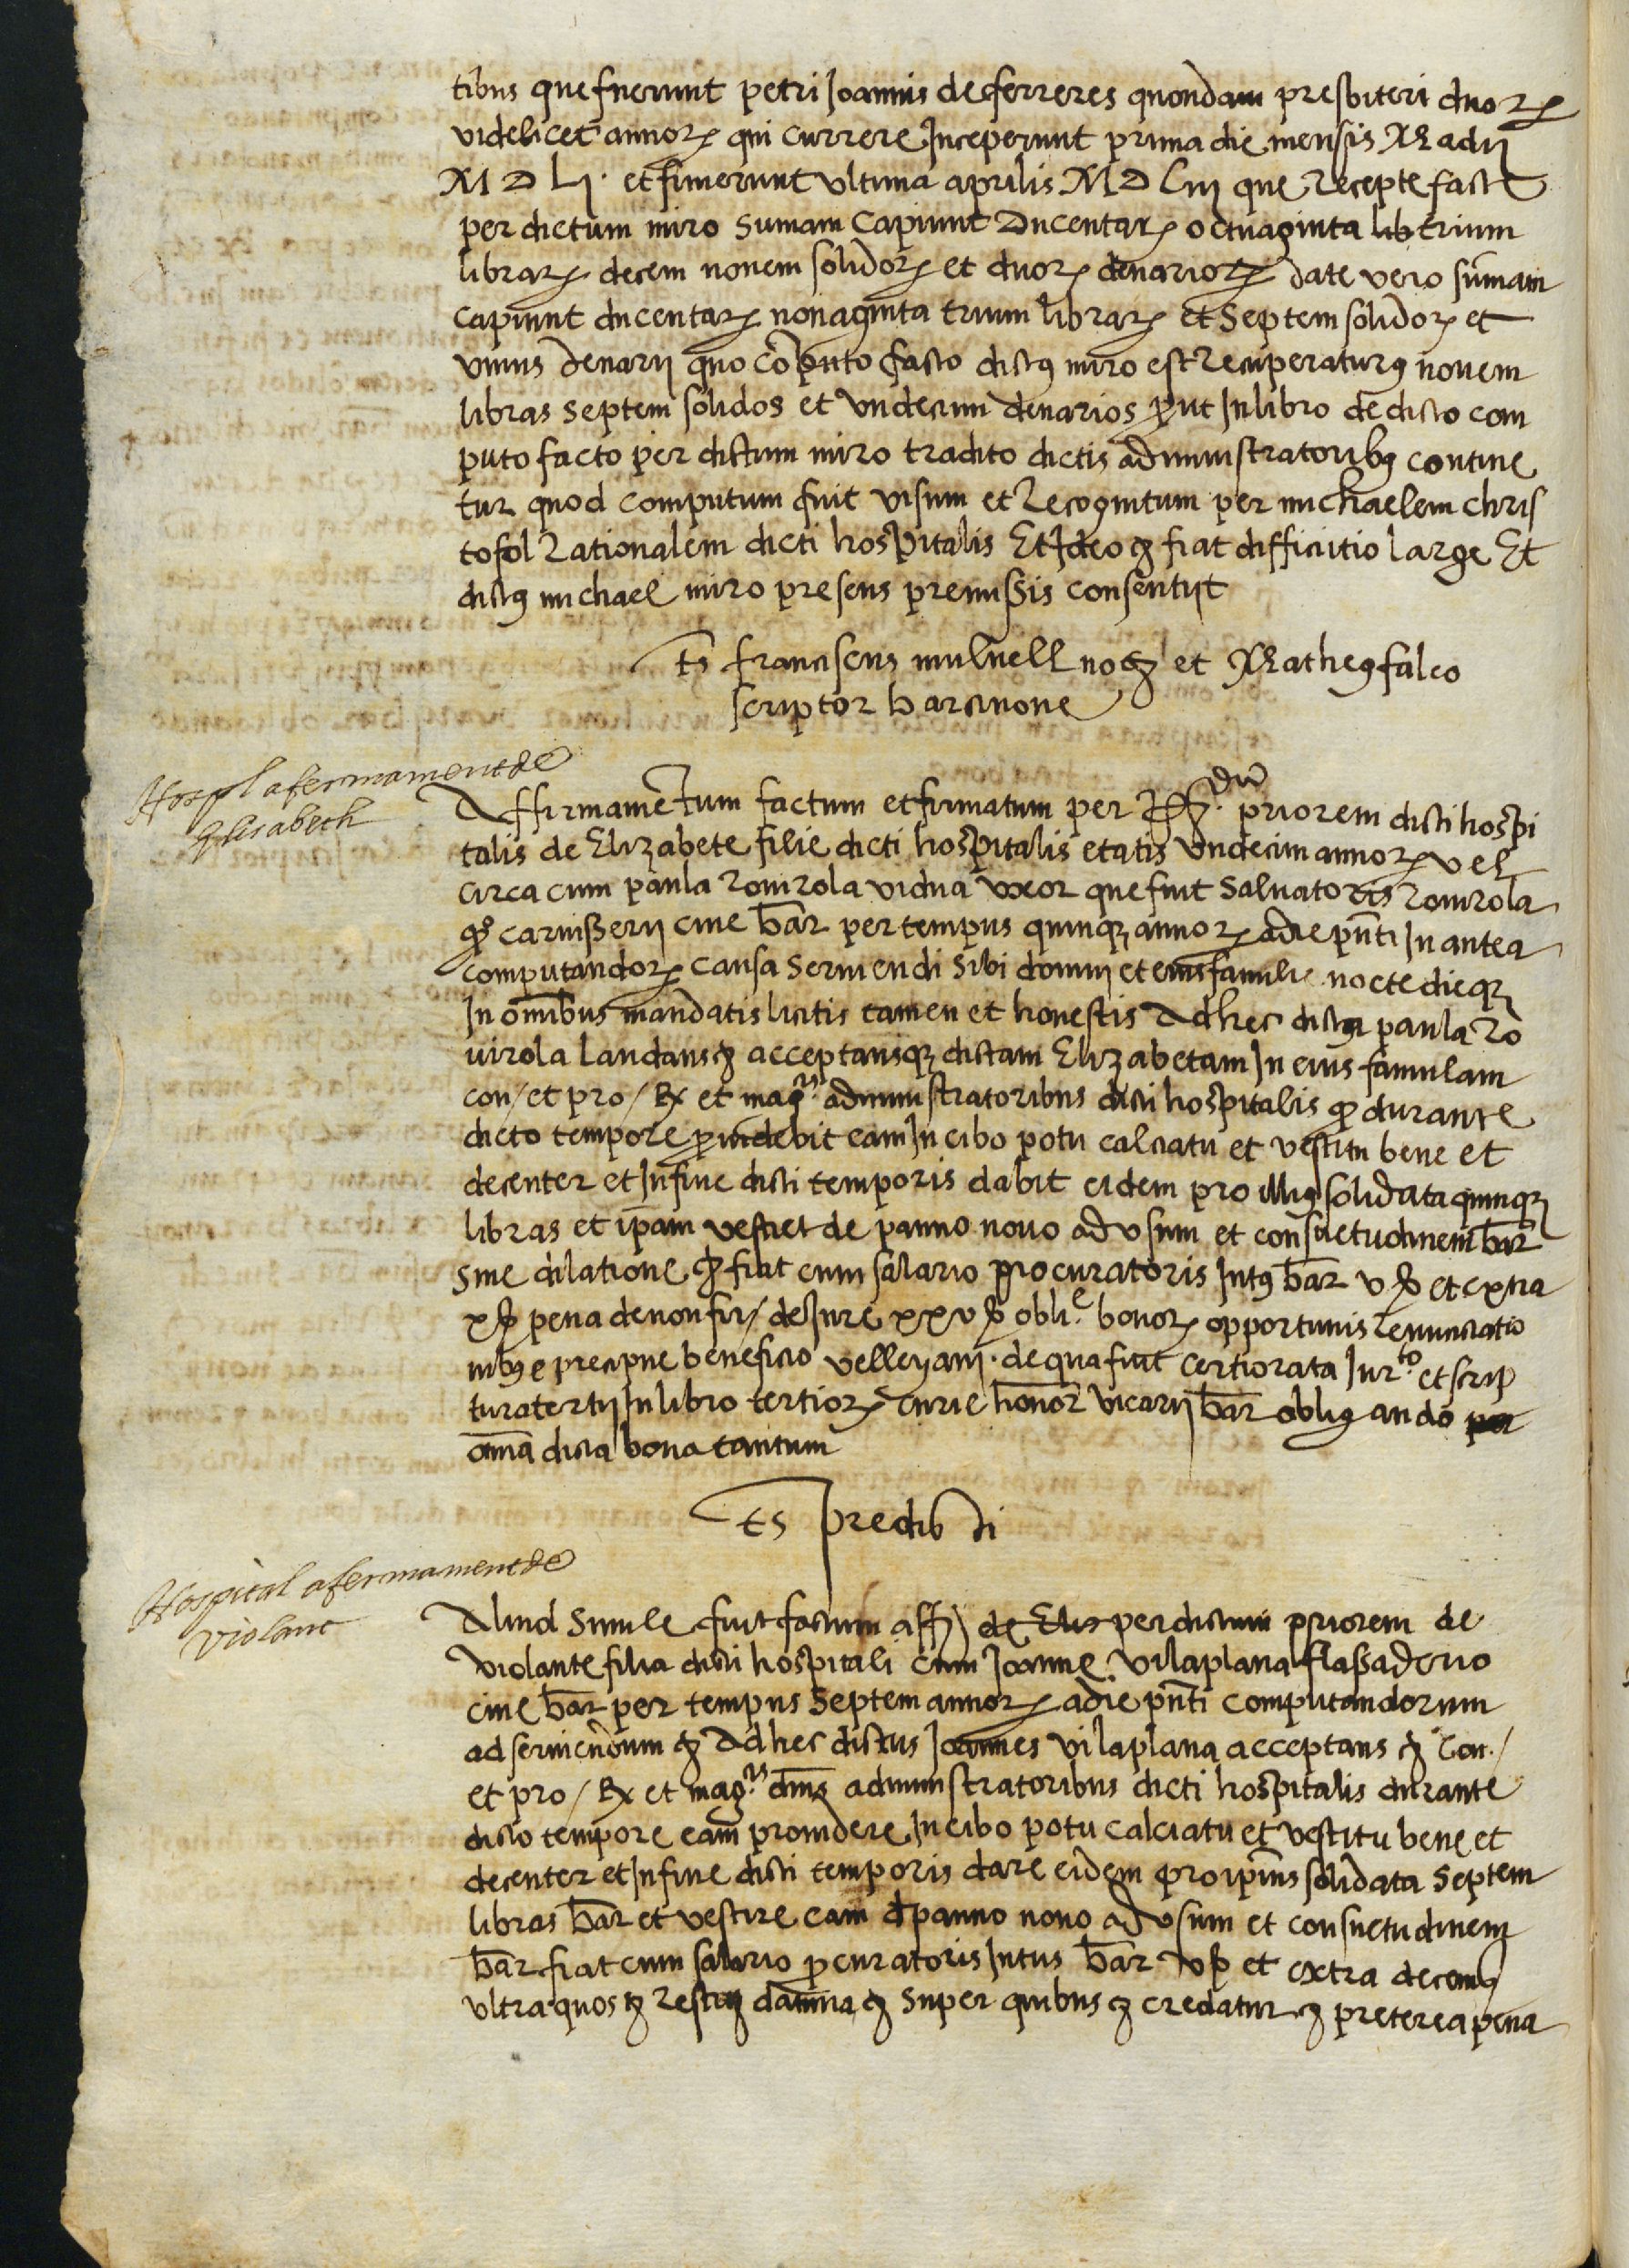 tibus que fuerunt petri Joannis de ferreres quondam presbiteri duorꝝ
videlicet annorꝝ qui currere Inceperunt prima die mensis Madij
M D Lj. et finierunt ultima aprilis M D Liij que recepte facte
per dictum miro sumam capiunt Ducentarꝝ octuaginta lib trium
librarꝝ decem novem solidorꝝ et duorꝝ denariorꝝ date vero sumam
capiunt ducentarꝝ nonaginta trium librarꝝ et septem solidorꝝ et
unius denarij quo cõputo facto dictꝰ miro est recuperaturꝰ novem
libras septem solidos et undecim denarios ꝓut In libro de dicto com
puto facto per dictum miro tradito dictis administratoribꝰ contine
tur quod computum fuit visum et recognitum per michaelem chris
tofol rationalem dicti hospitalis Et Ideo ⁊c̃ fiat difficitio large Et
dictꝰ michael miro presens premissis consentijt
ts franciscus mulnell not̃ et Matheꝰ falco
scriptor barcinone
Hospl afermament de
Elisabeth
Affirmamentum factum et firmatum per dñ priorem dicti hospi
talis de Elizabete filie dicti hospitalis etatis undecim annorꝝ vel
circa cum paula rovirola vidua uxor que fuit salvatoris rovirola
qº carnisserij cive bar̃ per tempus quinqꝫ annorꝝ a die pñti In antea
computandorꝝ causa serviendi sibi domuj et eius familie nocte dieqꝫ
In omibus mandatis licitis tamen et honestis Ad hec dicta paula ro
virola laudans ⁊c̃ acceptansqꝫ dictam Elizabetam In eius famulam
con/ et pro/ Rx et magcis administratoribus dicti hospitalis ꝙ durante
dicto tempore ꝓvidebit eam In cibo potu calciatu et vestitu bene et
decenter et In fine dicti temporis dabit eidem pro illiꝰ solidata quinqꝫ
libras et ip̃am vestiet de panno novo ad usum et consuetudinem bar̃
sine dilatione ⁊c̃ fiat cum salario procuratoris Intꝰ bar̃ v ß et extra
x ß pena de non fir/ de Jure xxv ß oblie bonorꝝ opportunis renunciatio
nibꝰ e precipue beneficio velleyani. de qua fuit certiorata Jurto et scrip
tura tertij In libro tertiorꝝ curie honor̃ vicarij bar̃ obligando
om̃ia dicta bona tantum
ts predicti
Hospital afermament de
Violant
Aliud simile fuit factum aff̃ de Elis per dictum priorem de
violante filia dicti hospitali cum Joanne vilaplana flassaderio
cive bar̃ per tempus septem annorꝝ a die pñti computandorum
ad serviendum ⁊c̃ Ad hec dictus Joannes vilaplana acceptans ⁊c̃ con./
et pro/ Rx et magcis dñis administratoribus dicti hospitalis durante
dicto tempore eam providere In cibo potu calciatu et vestitu bene et
decenter et In fine dicti temporis dare eidem pro ip̃ius solidata septem
libras bar̃ et vestire eam d panno novo ad usum et consuetudinem
bar̃ fiat cum salario ꝓcuratoris Intus bar̃ v ß et extra decem
ultra quos ⁊c̃ restit̃ damna ⁊c̃ super quibus ⁊c̃ credatur ⁊c̃ preterea pena